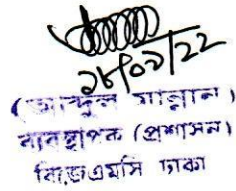 ১৮/০১/২২
(আব্দুল মান্নান)
ব্যবস্থাপক (প্রশাসন)
বিজেএমসি ঢাকা